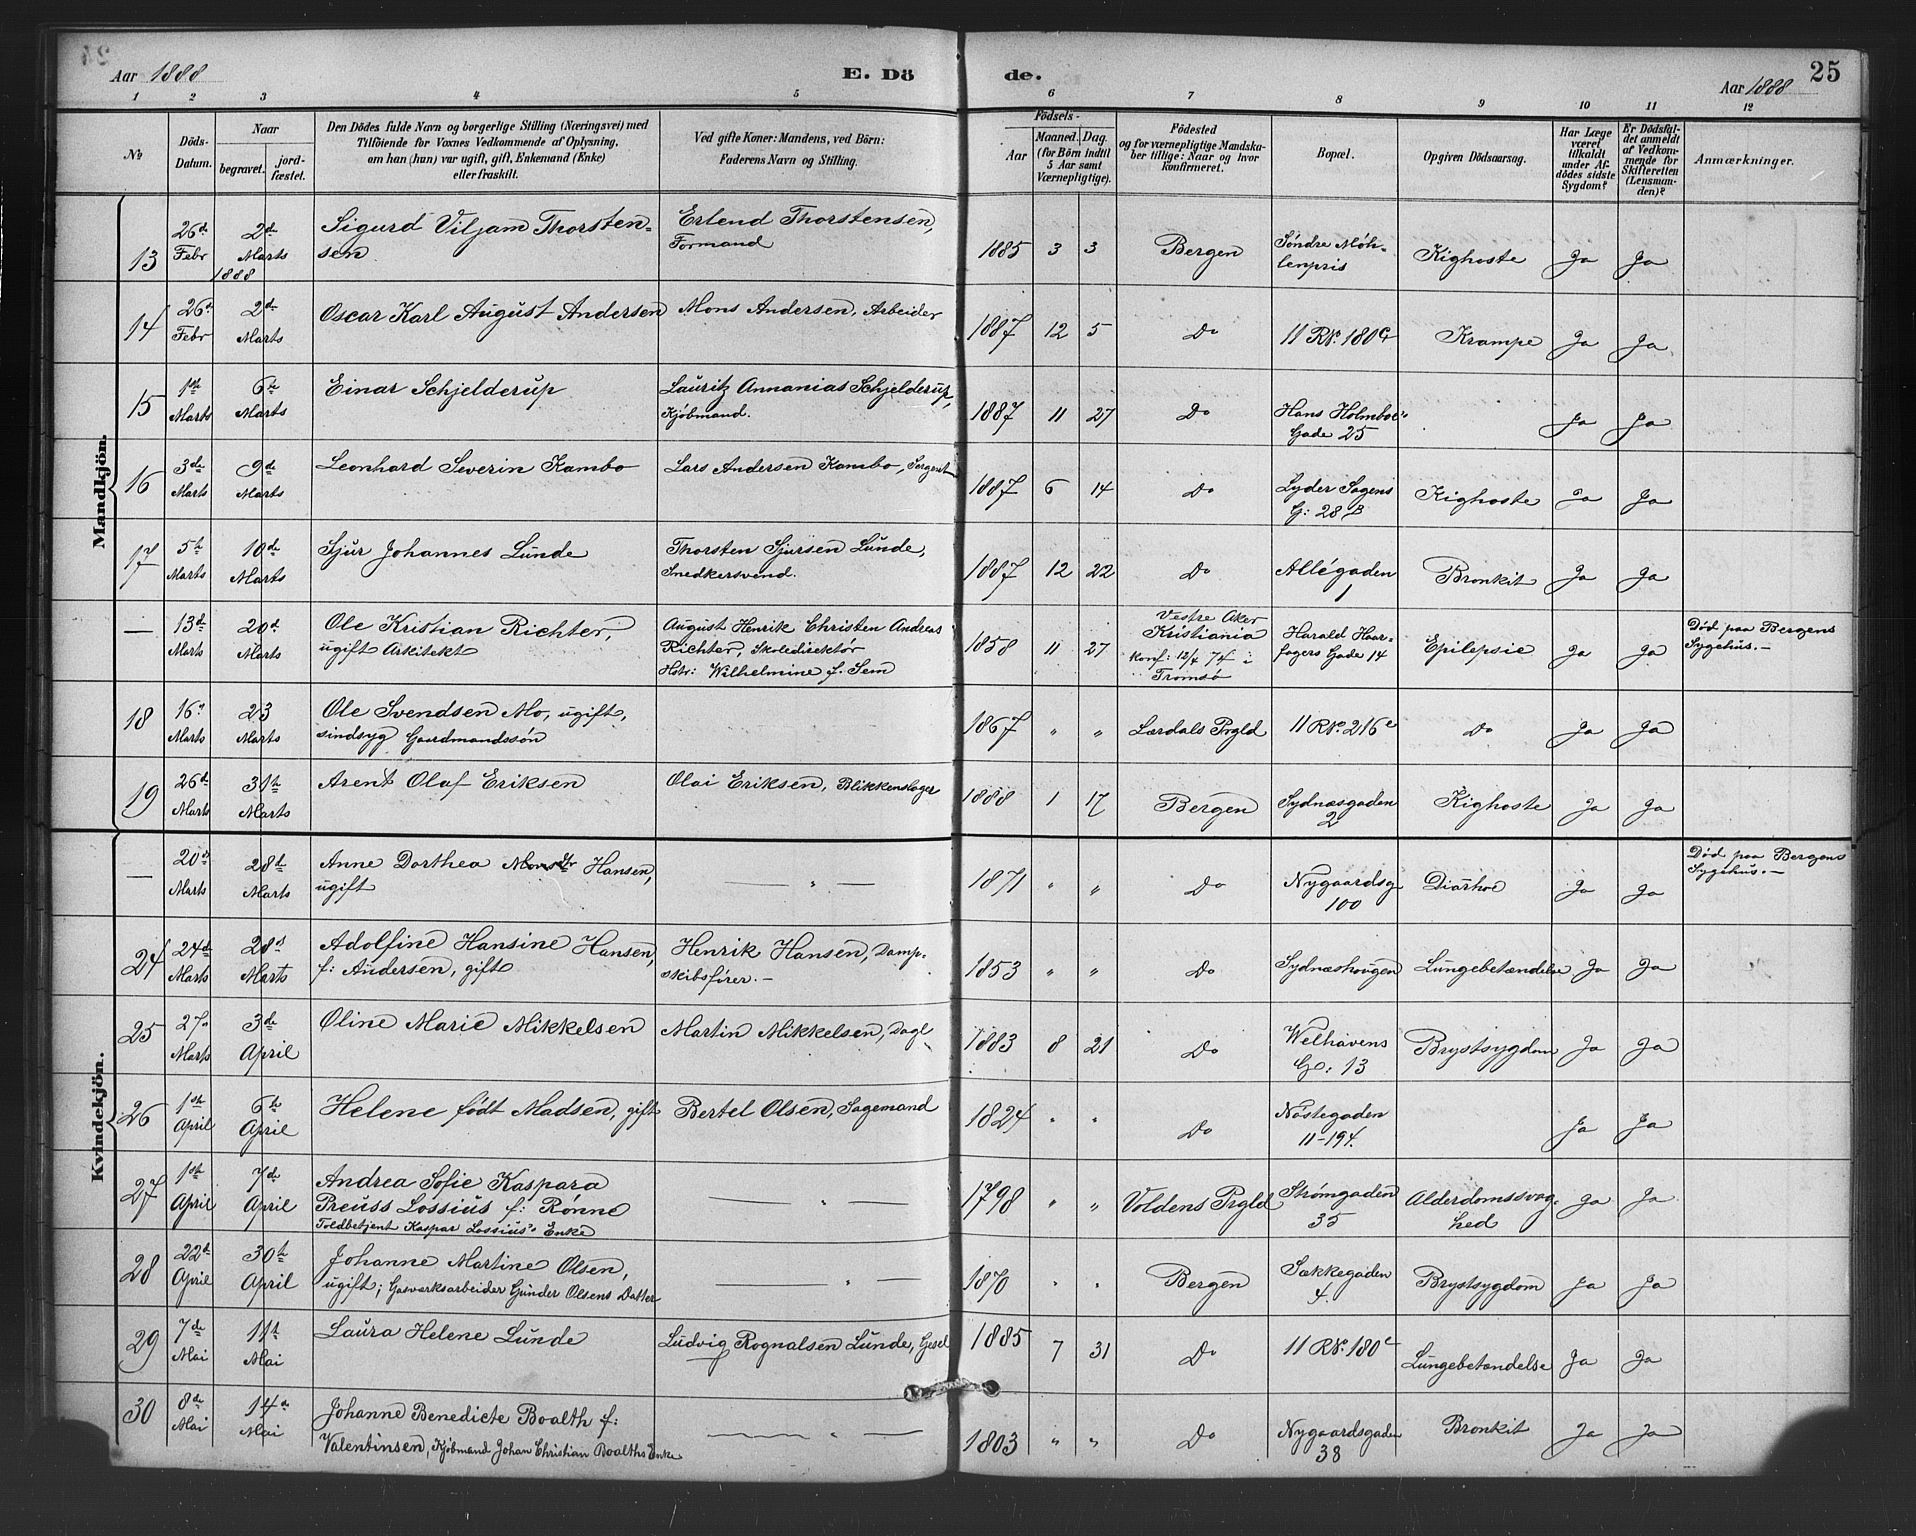 Aar 1888
E. Döde.
Aar 1888
25
1 2 3 4 5 6 7 8 9 10 11 12
No
Döds-Datum.
Naar
begravet.
jord-fæstet.
Den Dödes fulde Navn og borgerlige Stilling (Næringsvei) med
Tilföiende for Voxnes Vedkommende af Oplysning,
om han (hun) var ugift, gift, Enkemand (Enke)
eller fraskilt.
Ved gifte Koner: Mandens, ved Börn:
Faderens Navn og Stilling.
Födsels-
Aar
Maaned. Dag.
(for Börn indtil
5 Aar samt
Værnepligtige).
Födested
og for værnepligtige Mandska-
ber tillige: Naar og hvor
konfirmeret.
Bopæl.
Opgiven Dödsaarsag.
Har Læge
været
tilkaldt
under Af-
dödes sidste
Sygdom?
Er Dödsfal-
det anmeldt
af Vedkom-
mende for
Skifteretten
(Lensman-
den)?
Anmærkninger.
Mandkjön.
13 26d Febr 2d Marts 1888 Sigurd Viljam Thorsten-
sen Erlend Thorstensen,
Formand 1885 3 3 Bergen Søndre Møh-
lenpris Kighoste Ja Ja
14 26d Febr 2d Marts Oscar Karl August Andersen Mons Andersen, Arbeider 1887 12 5 Do 11 RNo 180 Krampe Ja Ja
15 1ste Marts 6te Marts Einar Schjelderup Lauritz Annanias Schjelderup,
Kjøbmand. 1887 11 27 Do Hans Holmboe's
Gade 25 Ja Ja
16 3de Marts 9de Marts Leonhard Severin Kambo Lars Andersen Kambo, Sergent 1887 6 14 Do Lyder Sagens
G: 28 B Kighoste Ja Ja
17 5te Marts 10de Marts Sjur Johannes Lunde Thorsten Sjursen Lunde,
Snedkersvend. 1887 12 22 Do Allégaden
1 Bronkit Ja Ja
— 13de Marts 20de Marts Ole Kristian Richter,
ugift Arkitekt August Henrik Christen Andreas
Richter, Skoledirektør
Hstr: Wilhelmine f. Sem 1858 11 27 Vestre Aker
Kristiania
konf: 12/4 74 i
Tromsø Harald Haar-
fagers Gade 14 Epilepsie Ja Ja Død paa Bergens
Sygehus.—
18 16d Marts 23 Marts Ole Svendsen Mo, ugift,
sindsyg Gaardmandssøn 1867 " " Lærdals Prgld 11 RNo 216c Do Ja Ja
19 26de Marts 31te Marts Arent Olaf Eriksen Olai Eriksen, Blikkenslager 1888 1 17 Bergen Sydnæsgaden
2 Kighoste Ja Ja
Kvindekjön.
— 20de Marts 28de Marts Anne Dorthea Monsdtr Hansen,
ugift — " — 1871 " " Do Nygaardsg
100 Diarhoe Ja Ja Død paa Bergens
Sygehus.—
24 24de Marts 28de Marts Adolfine Hansine Hansen,
f: Andersen, gift Henrik Hansen, Damp-
skibsfører.— 1853 " " Do Sydnæshougen Lungebetændelse Ja Ja
25 27d Marts 3de April Oline Marie Mikkelsen Martin Mikkelsen, Dagl 1883 8 21 Do Welhavens
G: 13 Brystsygdom Ja Ja
26 1ste April 6te April Helene født Madsen, gift Bertel Olsen, Sagemand 1824 " " Do Nøstegaden
11-194. Ja Ja
27 1ste April 7de April Andrea Sofie Kaspara
Preuss Lossius f: Rønne
Toldbetjent Kaspar Lossius's Enke — " — 1798 " " Voldens Prgld Strømgaden
35 Alderdomssvag-
hed Ja Ja
28 22de April 30te April Johanne Martine Olsen,
ugift; Gasværksarbeider Gunder Olsens Datter — " — 1870 " " Bergen Sækkegaden
4. Brystsygdom Ja Ja
29 7de Mai 11te Mai Laura Helene Lunde Ludvig Rognalsen Lunde, Gesel 1885 7 31 Do 11 RNo 180c Lungebetændelse Ja Ja
30 8de Mai 14de Mai Johanne Benedicte Boalth f:
Valentinsen, Kjøbmand Johan Christian Boalths Enke — " — 1803 " " Do Nygaardsgaden
38 Bronkit Ja Ja